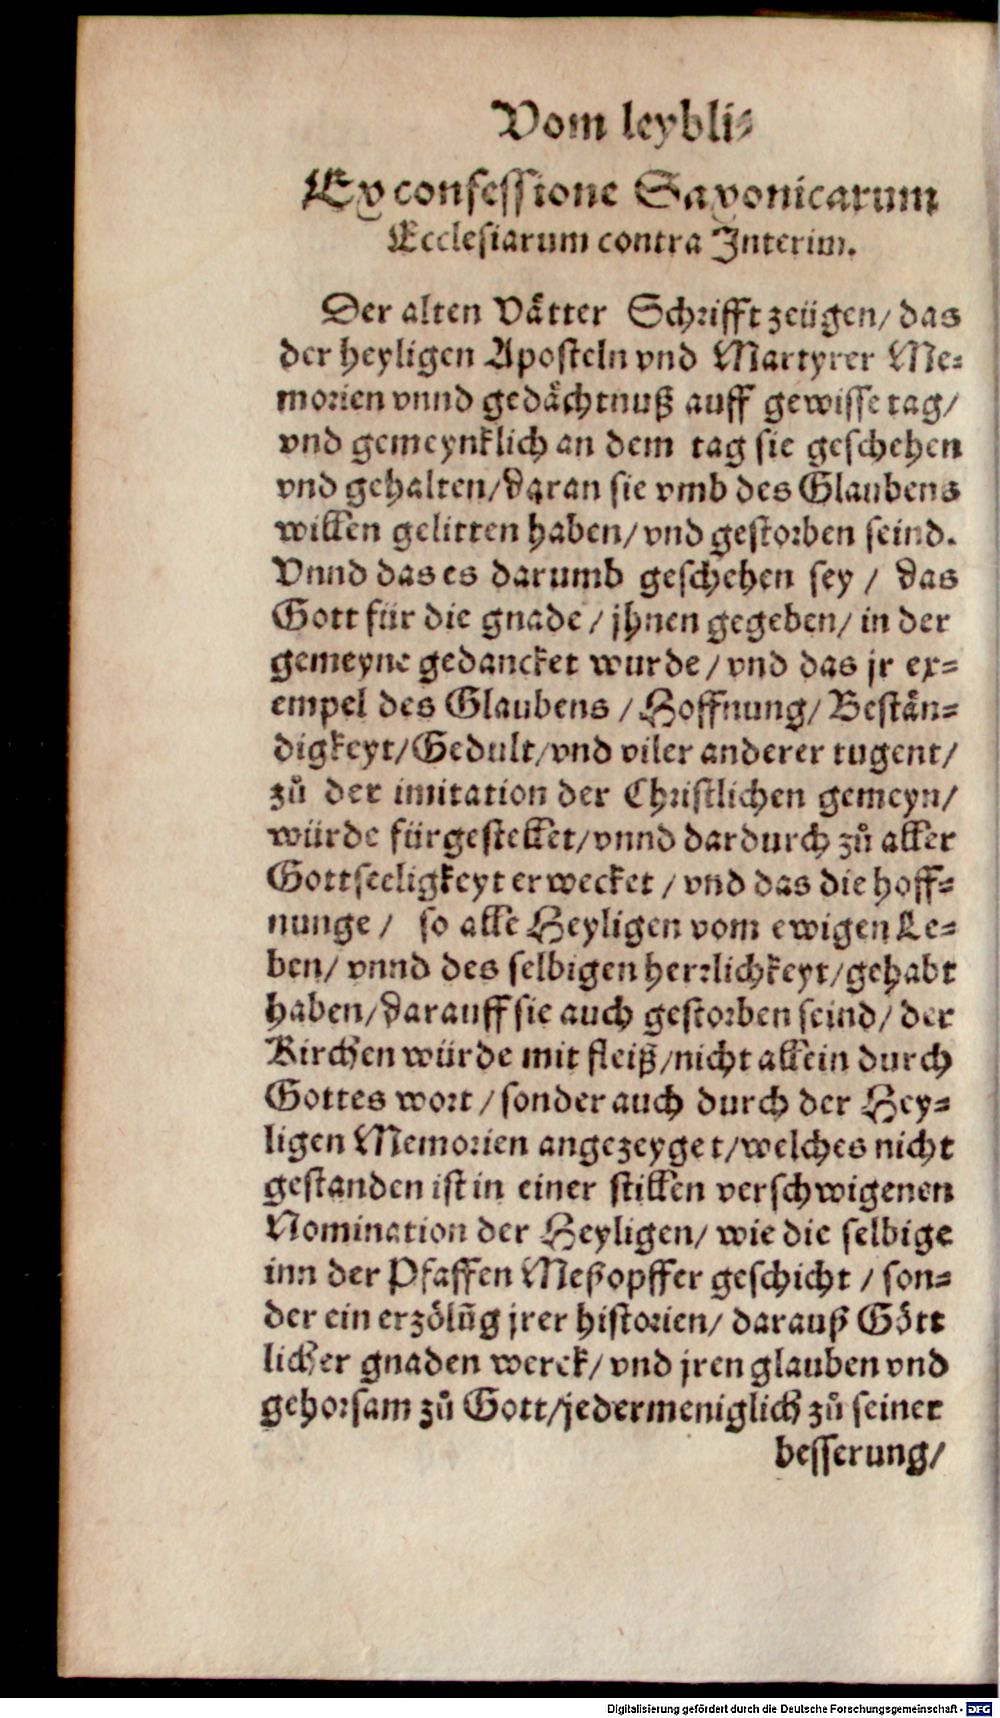 Vom leybli⸗
Ex confessione Saxonicarum
Ecclesiarum contra Interim.
Der alten Vätter Schrifft zeügen/ das
der heyligen Aposteln vnd Martyrer Me⸗
morien vnnd gedächtnuß auff gewisse tag/
vnd gemeynklich an dem tag sie geschehen
vnd gehalten/ daran sie vmb des Glaubens
willen gelitten haben/ vnd gestorben seind.
Vnnd das es darumb geschehen sey / das
Gott für die gnade / jhnen gegeben/ in der
gemeyne gedancket wurde / vnd das jr ex⸗
empel des Glaubens / Hoffnung/ Bestän⸗
digkeyt/ Gedult/ vnd viler anderer tugent/
zů der imitation der Christlichen gemeyn/
würde fürgestellet/ vnnd dardurch zů aller
Gottseeligkeyt erwecket / vnd das die hoff⸗
nunge / so alle Heyligen vom ewigen Le⸗
ben/ vnnd des selbigen herrlichkeyt/ gehabt
haben/ darauff sie auch gestorben seind/ der
Kirchen würde mit fleiß/ nicht allein durch
Gottes wort / sonder auch durch der Hey⸗
ligen Memorien angezeyget/ welches nicht
gestanden ist in einer stillen verschwigenen
Nomination der Heyligen/ wie die selbige
inn der Pfaffen Meßopffer geschicht / son⸗
der ein erzölūg jrer historien/ darauß Gött
licher gnaden werck/ vnd jren glauben vnd
gehorsam zů Gott/ jedermeniglich zů seiner
besserung/
Digitalisierung gefördert durch die Deutsche Forschungsgemeinschaft - DFG